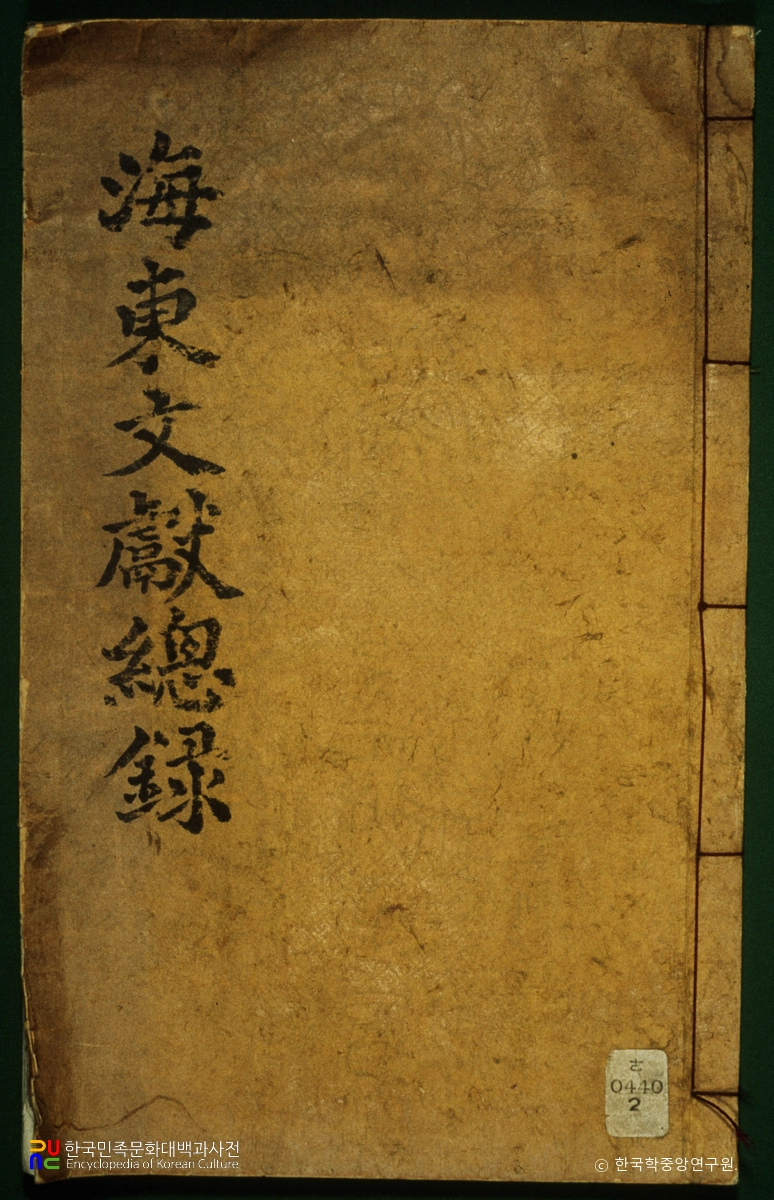 海東文獻總錄
ㅎ
0440
2
한국민족문화대백과사전
Encyclopedia of Korean Culture
© 한국학중앙연구원